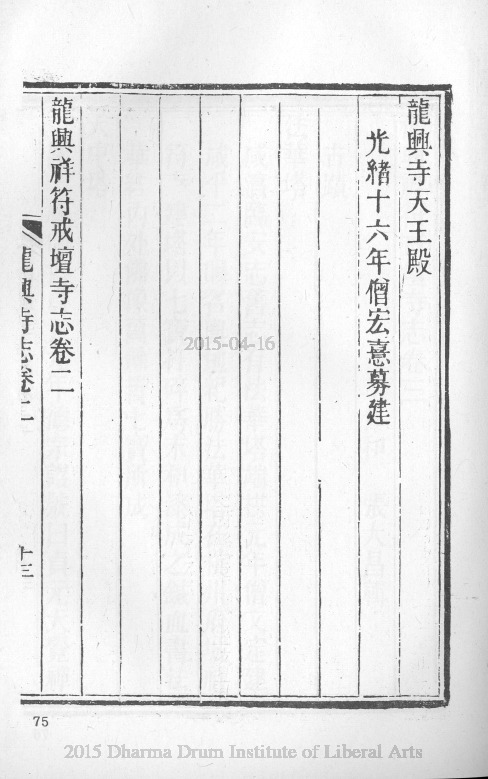 龍興寺天王殿
光緒十六年僧宏憙募建
龍興祥符戒壇寺志卷二
龍興寺志卷二
十三
75
2015-04-16
2015 Dharma Drum Institute of Liberal Arts